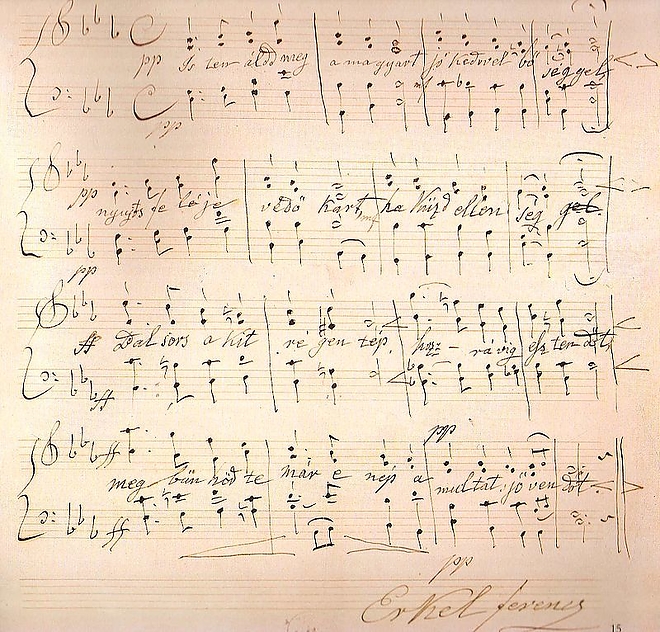 pp Is ten áldd meg a magyart jó kedvvel bő séggel
pp
pp nyujts fe léje védő kart mf ha küzd ellen ség gel
pp
ff Bal sors a kit ré gen tép, hoz - rá vig esz ten dőt
ff
ff pp
meg bün hőd te már e nép a multat jö ven dőt
ff
pp
Erkel ferencz
15